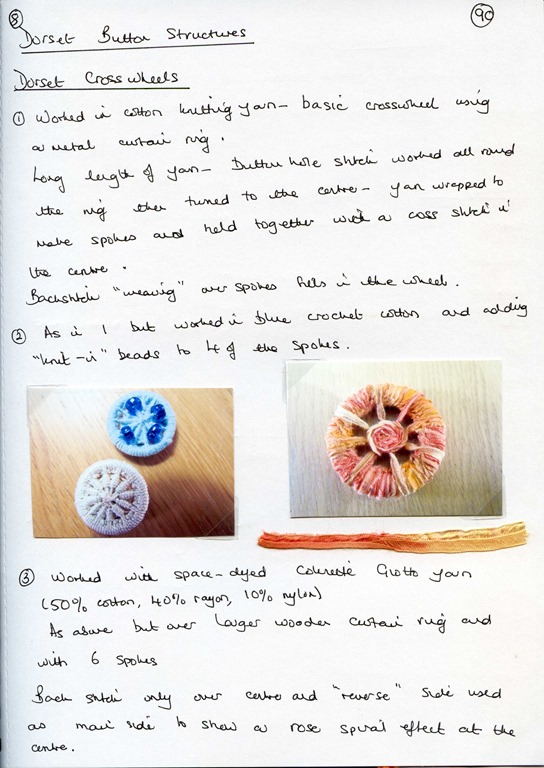 8
90
Dorset Button Structures
Dorset Crosswheels
① Worked in cotton knitting yarn - basic crosswheel using
a metal curtain ring.
Long length of yarn - Button hole stitch worked all round
the ring then turned to the centre - yarn wrapped to
make spokes and held together with a coss stitch in
the centre.
Backstitch "weaving" over spokes fills in the wheel.
② As in 1 but worked in blue crochet cotton and adding
"knit-in" beads to 4 of the spokes.
③ Worked with space-dyed Colinette Giotto yarn
(50% cotton, 40% rayon, 10% nylon)
As above but over larger wooden curtain ring and
with 6 spokes
Back stitch only over centre and "reverse" side used
as main side to show a rose spiral effect at the
centre.